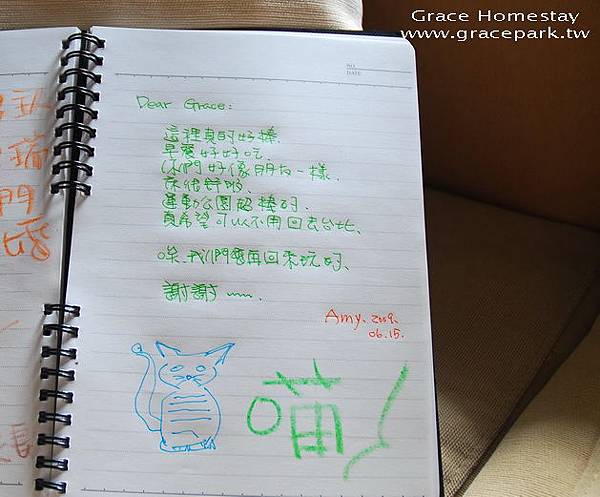 Grace Homestay
www.gracepark.tw
NO.
DATE
Dear Grace:
這裡真的好棒.
早餐好好吃.
你們好像朋友一樣.
床很舒服.
運動公園超棒的.
真希望可以不用回去台北、
唉.我們會再回來玩的、
謝謝～.
Amy、2009、
06.15.
喵